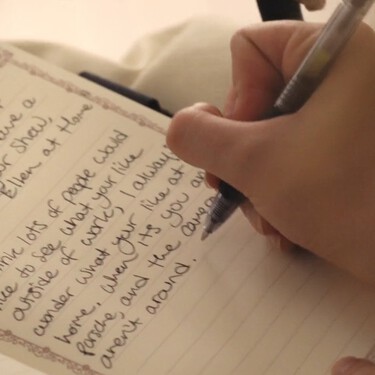 have a
show,
Ellen at Home
lots of people would
like to see what your like
outside of work, I always
wonder what your like at
home, when it's you an
Porsche, and the camera
aren't around.